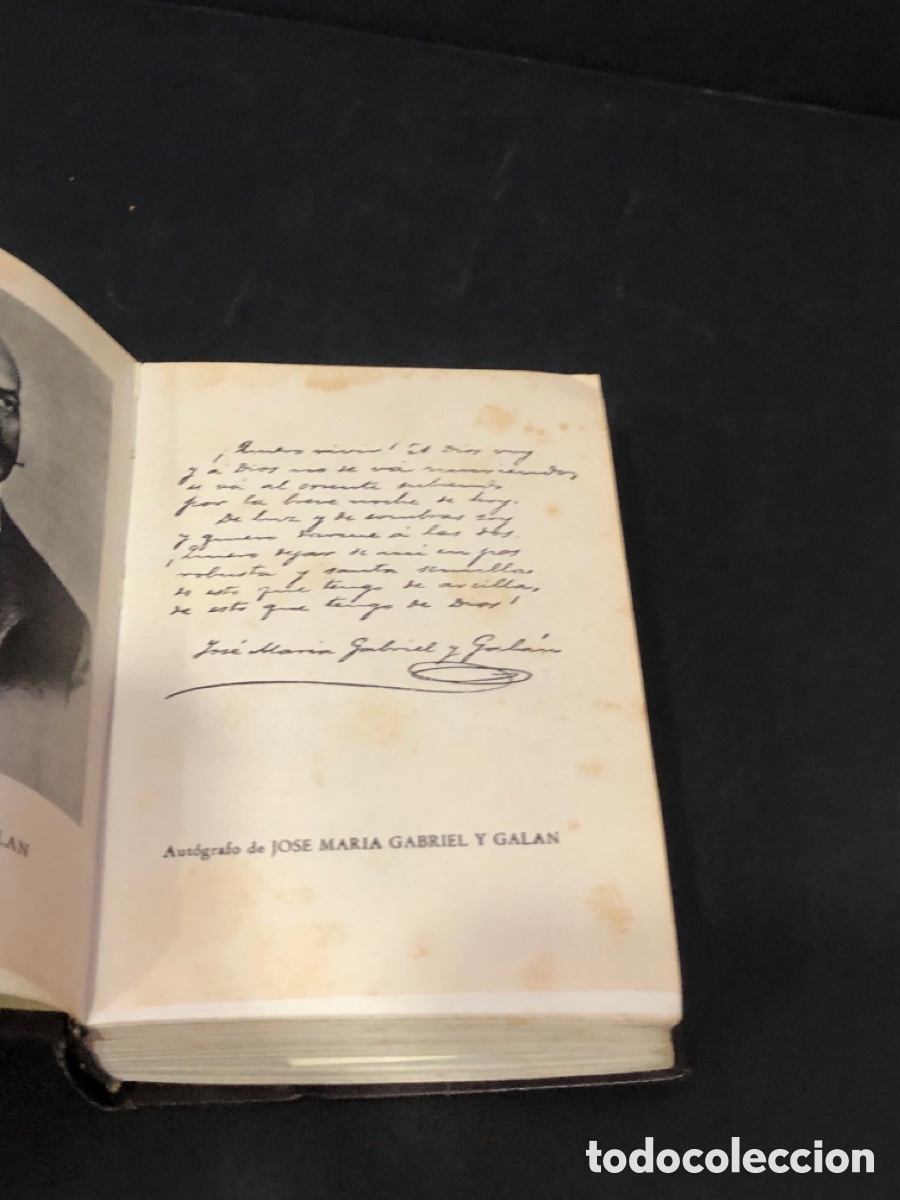 ¡Quiero vivir! A Dios voy
y á Dios no se vá muriendo,
se vá al oriente subiendo
por la breve noche de hoy.
De luz y de sombras soy
y quiero darme á las dos.
¡Quiero dejar de mí en pos
robusta y santa semilla
de esto que tengo de arcilla,
de esto que tengo de Dios!
José Maria Gabriel y Galán
LAN
Autógrafo de JOSE MARIA GABRIEL Y GALAN
todocoleccion